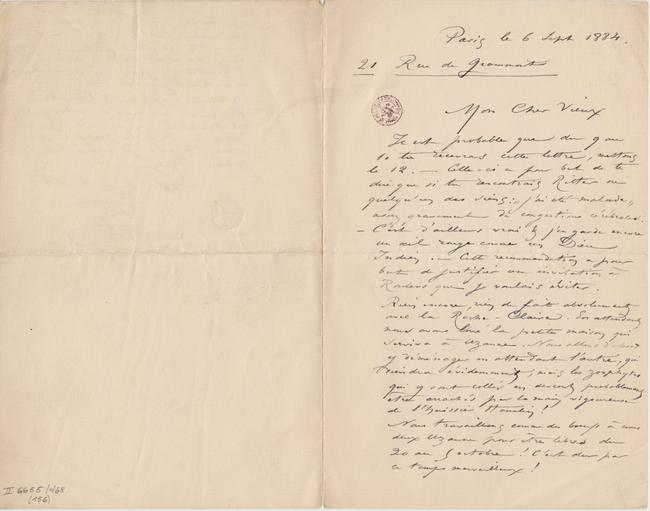 Paris le 6 Sept 1884.
21 Rue de Grammont
Mon Cher Vieux
Il est probable que du 9 au
10 tu recevras cette lettre, mettons
le 12. — Celle-ci a pour but de te
dire que si tu rencontrais Ritter ou
quelqu'un des siens, "j'ai été malade"
assez gravement de congestions cérébrales.
— C'est d'ailleurs vrai & j'en garde encore
un œil rouge comme un Dieu
Indien. — Cette recommandation a pour
but de justifier un invitation à
que je voulais éviter.
Rien encore, rien de fait absolument
avec la Roche-Claire. En attendant
nous avons loué la petite maison qui
servira à Uzanne. Nous allons d'abord
y déménager en attendant l'autre, qui
viendra évidemment, mais les zoophytes
qui y sont collés en devront probablement
être arrachés par la main vigoureuse
de l'huissier
Nous travaillons comme des bœufs à nous
deux Uzanne pour être libres du
20 au 5 octobre! C'est dur par
ce temps merveilleux!
II 6655/468
(156)